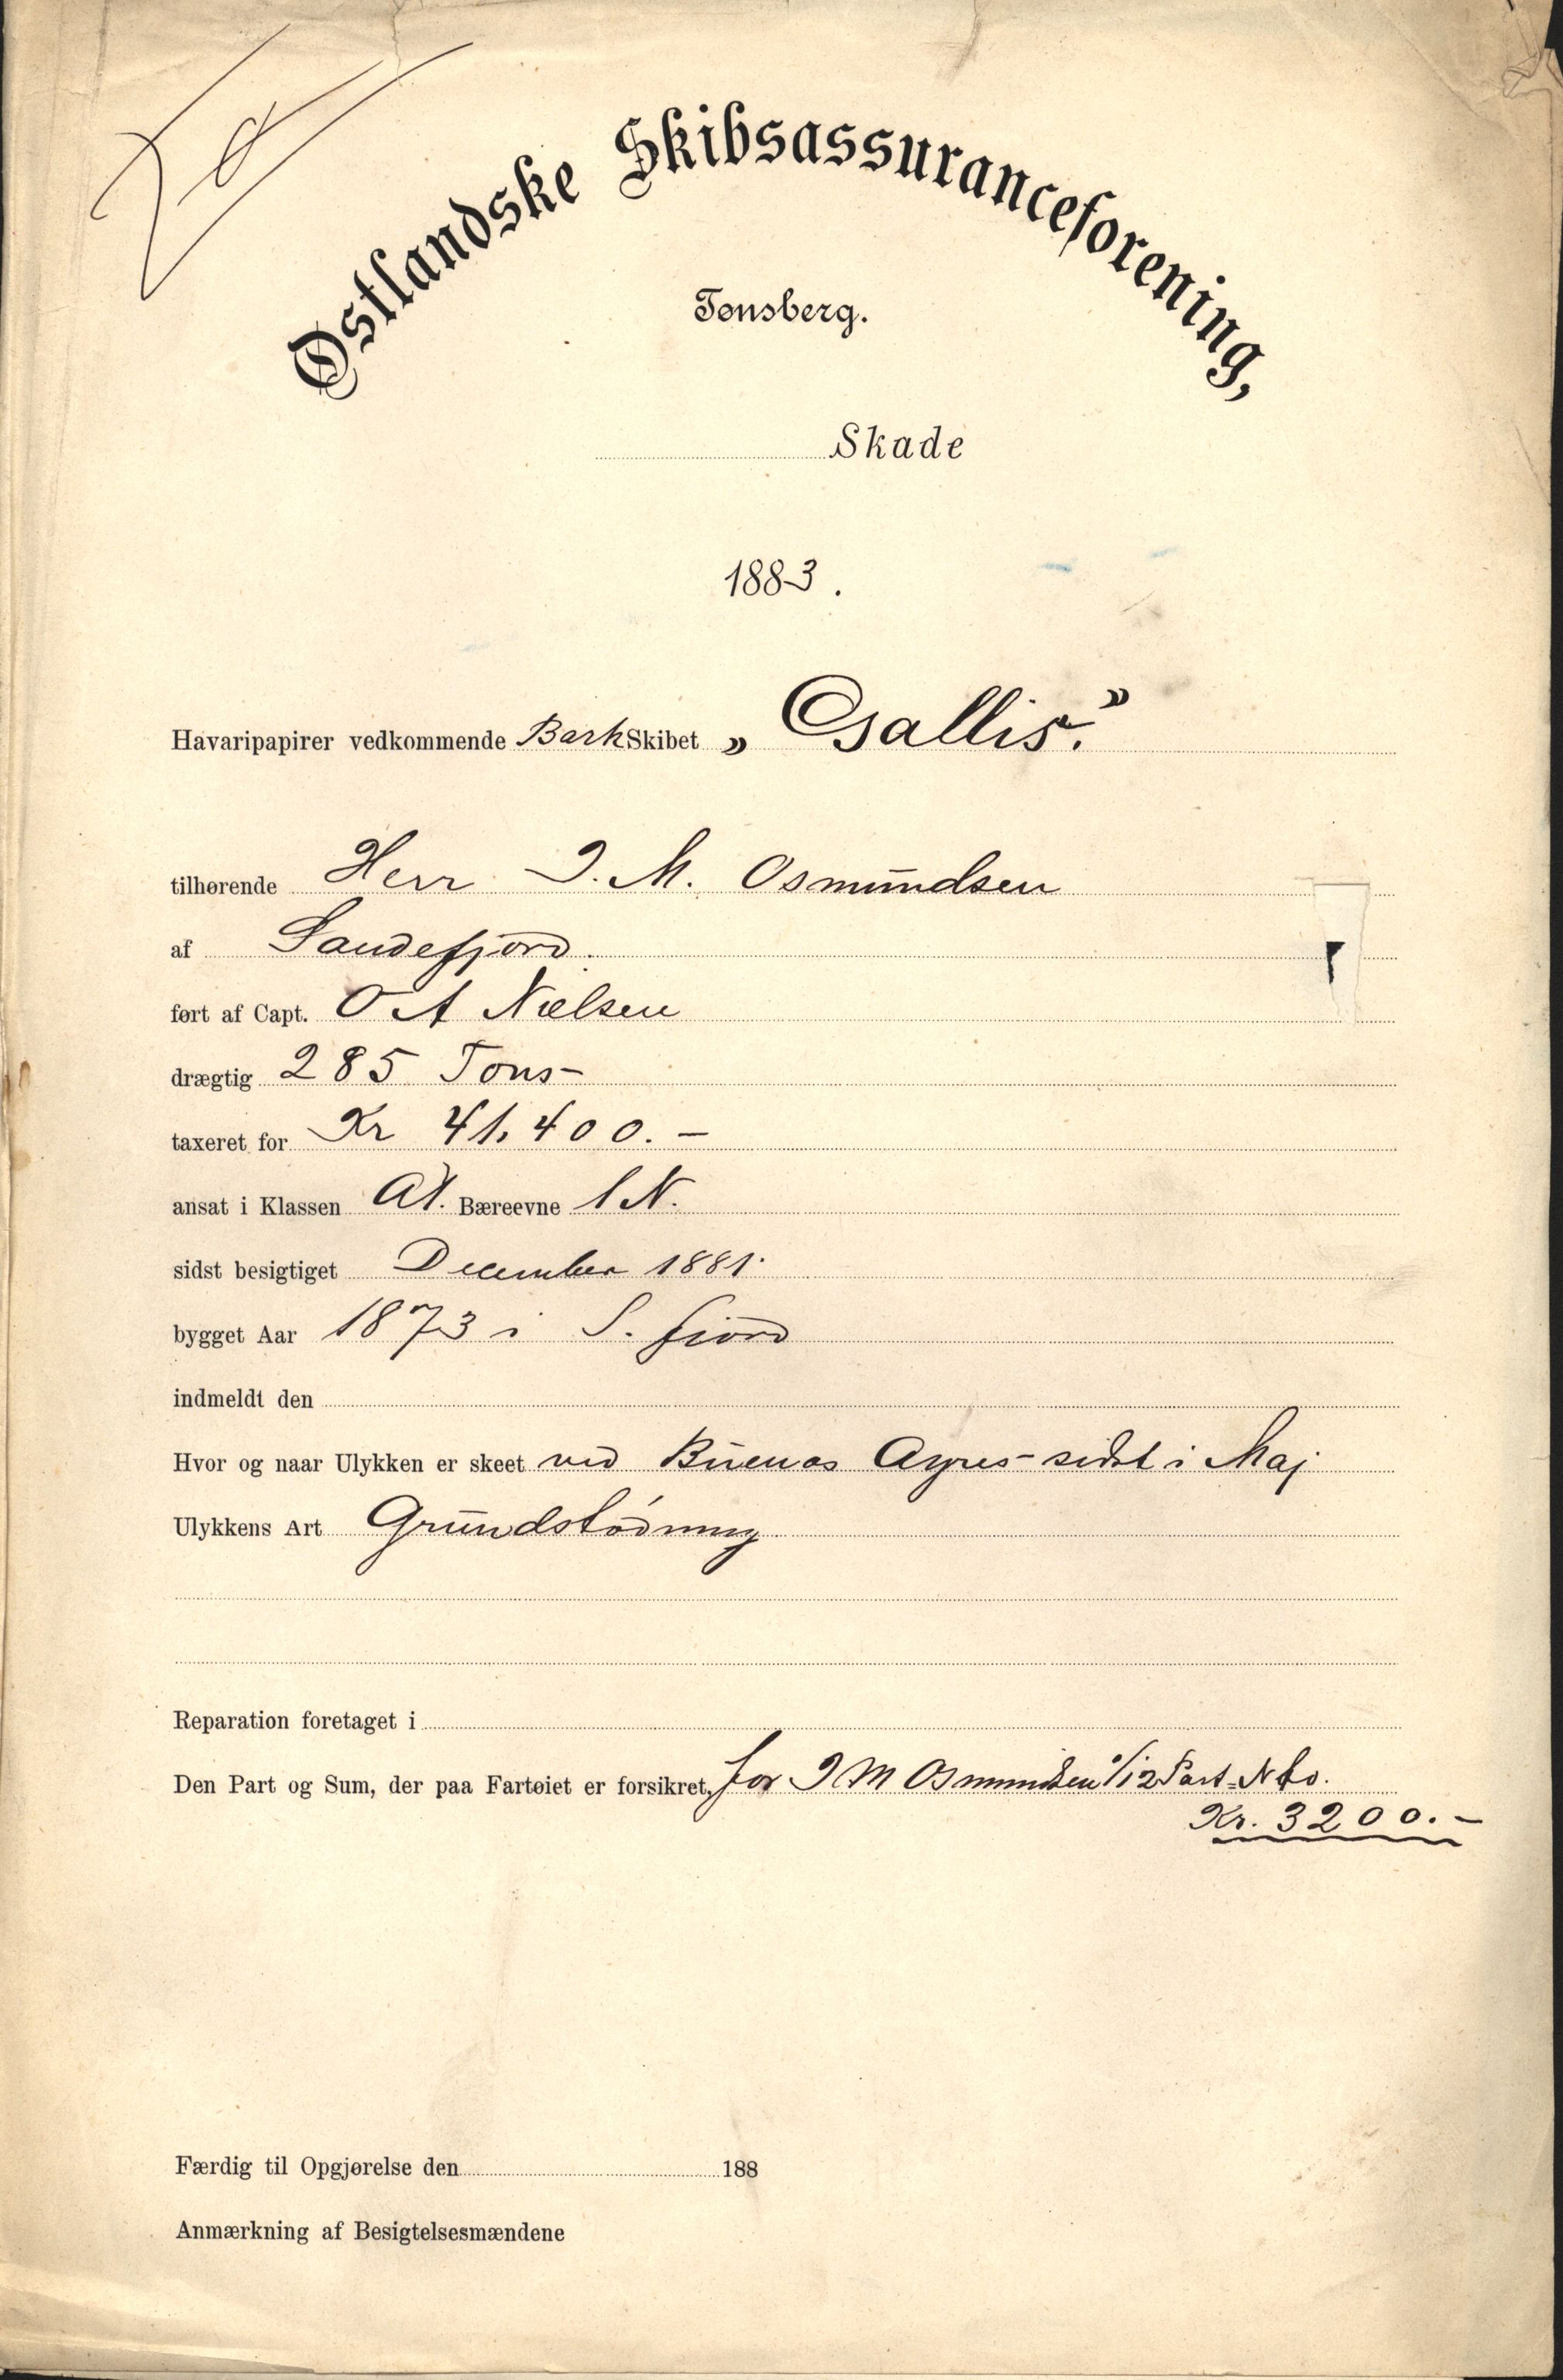 Østlandske Skibsassuranceforening,
Tønsberg.
Skade
1883.
Havaripapirer vedkommende Bark Skibet „Csallis.”
tilhørende Herr I. M. Osmundsen
af Sandefjord.
ført af Capt. O A Nielsen
drægtig 285 Tons-
taxeret for Kr 41,400.-
ansat i Klassen A1. Bæreevne 1 N.
sidst besigtiget December 1881.
bygget Aar 1873 i S. fjord
indmeldt den
Hvor og naar Ulykken er skeet ved Buenos Ayres - sidst i Maj
Ulykkens Art Grundstødning
Reparation foretaget i
Den Part og Sum, der paa Fartøiet er forsikret, for I M Osmundsen 1/12 Part =
Kr. 3200.-
Færdig til Opgjørelse den 188
Anmærkning af Besigtelsesmændene